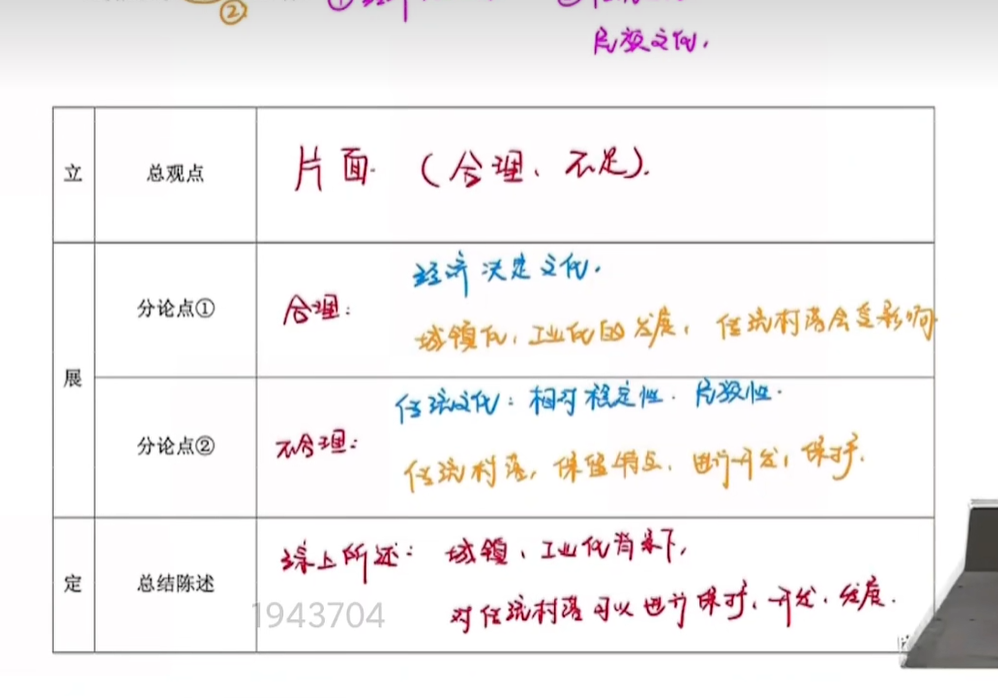 ②
民族文化.
立
总观点
片面. (合理、不足).
展
分论点①
合理:
经济决定文化.
城镇化、工业化的发展, 传统村落会受影响.
分论点②
不合理:
传统文化: 相对稳定性. 民族性.
传统村落, 保留特点, 进行开发, 保护.
定
总结陈述
综上所述: 城镇、工业化背景下,
对传统村落可以进行保护、开发、发展.
1943704